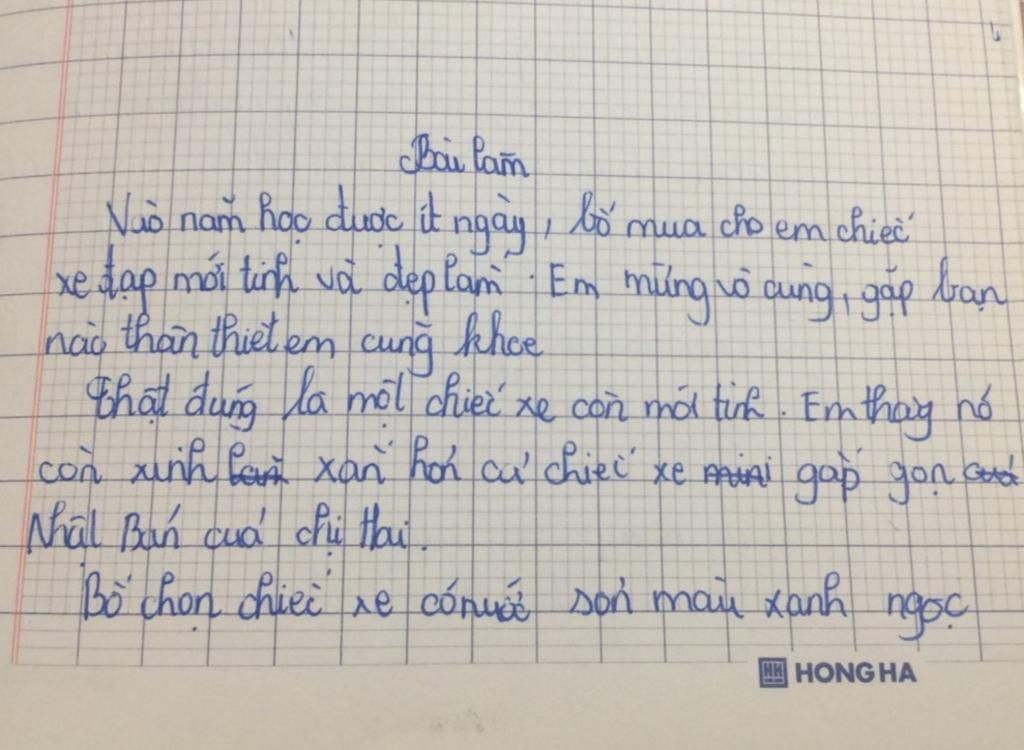 Bài làm
Vào năm học được ít ngày, bố mua cho em chiếc
xe đạp mới tinh và đẹp lắm. Em mừng vô cùng, gặp bạn
nào thân thiết em cũng khoe
Thật đúng là một chiếc xe còn mới tinh. Em thấy nó
còn xinh xắn hơn cả chiếc xe mini gấp gọn
Nhật Bản của chị Hai.
Bố chọn chiếc xe có nước sơn màu xanh ngọc
HH HONG HA